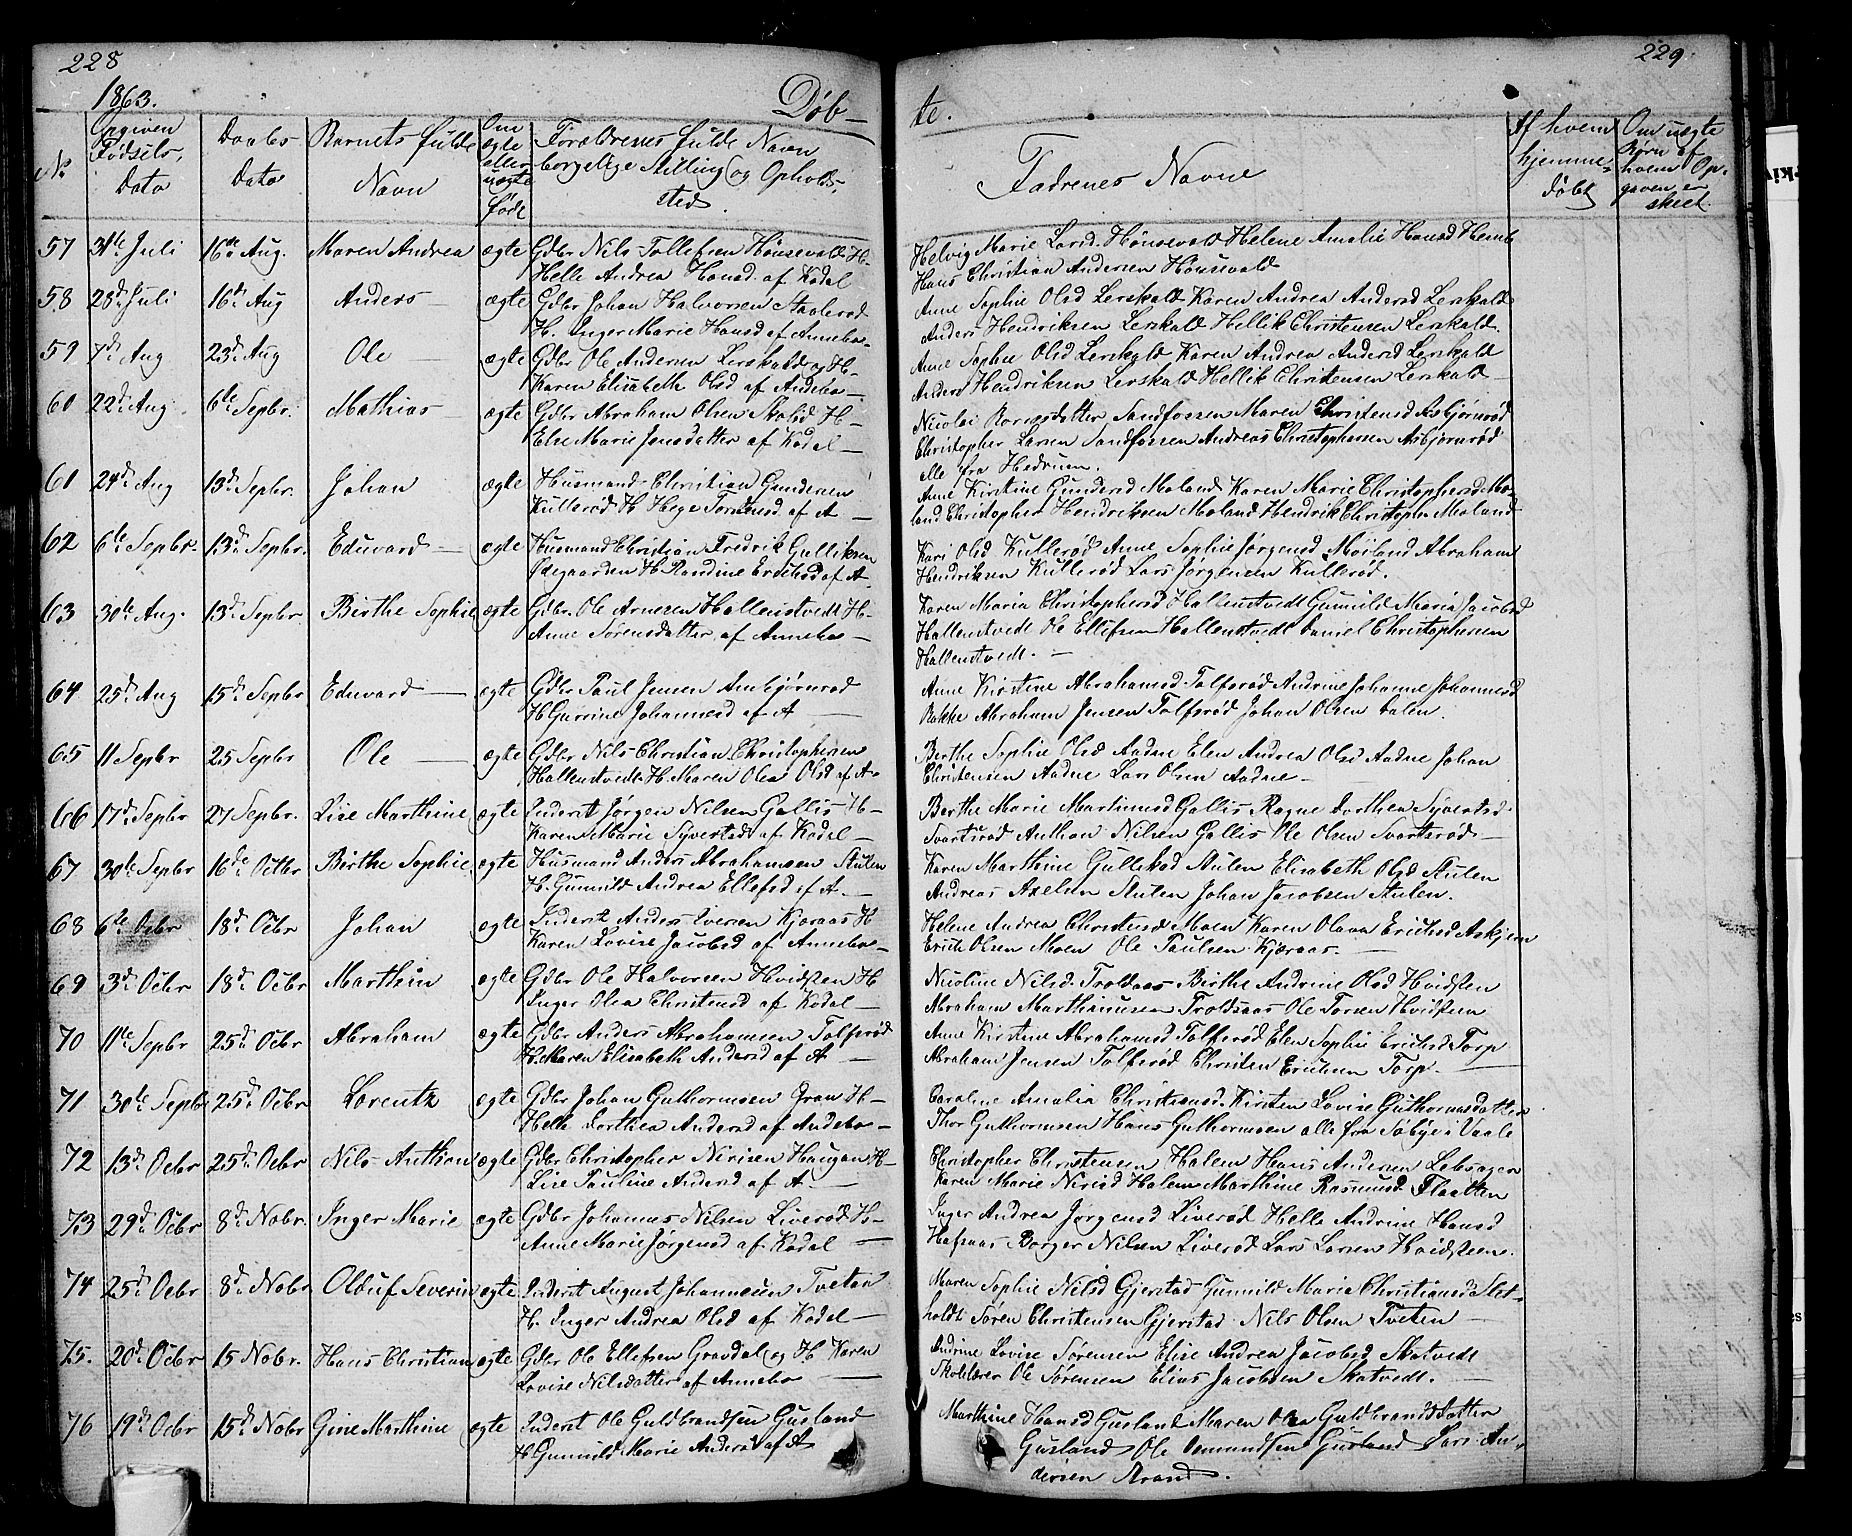 228
229
1863.
Døb-
te.
No
Opgiven Fødsels, Dato
Daabs Dato
Barnets fulde Navn
Om ægte eller uægte føde
Forældrenes fulde Navn borgelige Stilling og Opholds, sted.
Fadrenes Navne
Af hvem hjemme= døbt
Om uægte Børn af hvem Op, gaven er skeet.
57 31te Juli 16de Aug. Maren Andrea ægte Gdbr Nils Tollefsen Hønsevald H-
Helle Andrea Hansd. af Kodal
Helvig Marie Larsd. Hønsevald Helene Amalie Hansd
Hans Christian Andersen Hønsevald
58 28de Juli 16de Aug Anders - ægte Gdbr Johan Halvorsen Staalerød
H. Inger Marie Hansd af Annebo-
Anne Sophie Olsd Lerskald Karen Andrea Andersd Lerskald
Anders Hendriksen Lerskald Hellik Christensen Lerskald.
59 7de Aug 23de Aug Ole - ægte Gdbr Ole Andersen Lerskald og H-
Karen Elisabeth Olsd af Andebo-
Anne Sophie Olsd Lerskald Karen Andrea Andersd Lerskald
Anders Hendriksen Lerskald Hellik Christensen Lerskald-
60 22de Aug 6te Sepbr. Mathias - ægte Gdbr Abraham Olsen Skolid H-
Else Marie Jensdatter af Kodal-
Nicolai Sandfossen Maren Christensd Asbjørnrød
Christopher Larsen Sandfossen Andreas Christophersen Asbjørnrød
alle fra Hedrum.
61 24de Aug 13de Sepbr. Johan ægte Husmand Christian Gundersen
Kullerød H. Hege Torstensd. af A -
Anne Kirstine Gundersd Moland Karen Marie Christophersd Mo-
land Christopher Hendriksen Moland Hendrik Christoph. Moland
62 6te Sepbr. 13de Sepbr. Eduvard - ægte Husmand Christian Fredrik Gulliksen
Ødegaarden H. Randine Ericksd af A.
Kari Olsd Kullerød Anne Sophie Jørgensd Møiland Abraham
Hendriksen Kullerød Lars Jørgensen Kullerød.
63 30te Aug. 13de Sepbr Birthe Sophie ægte Gdbr. Ole Arnesen Hallenstvedt H-
Anne Sørensdatter af Annebo-
Karen Maria Christophersd Hallenstvedt Gunnild Maria Jacobsd
Hallenstvedt Ole Ellefsen Hallenstvedt Daniel Christophersen
Hallenstvedt. -
64 25de Aug 15de Sepbr Eduvard - ægte Gdbr Paul Jensen Ambjørnrød
H. Gurine Johannesd af A -
Anne Kirstine Abrahamsd. Tolfsrød Andrine Johanne Johannesd
Bakke Abraham Jensen Tolfsrød Johan Olsen Dalen.
65 11 Sepbr 25 Sepbr Ole - ægte Gdbr Nils Christian Christophersen
Hallenstvedt H. Maren Olea Olsd af A-
Berthe Sophie Olsd Aadne Elen Andrea Olsd Aadne Johan
Christensen Aadne Lars Olsen Aadne-
66 17de Sepbr 27 Sepbr. Lise Marthine ægte Inderst Jørgen Nilsen Gallis H-
Karen Marie Syvertsd af Kodal-
Berthe Marie Martinusd Gallis Ragne Dorthea Syvertsd.
Svartsrød Anthon Nilsen Gallis Ole Olsen Svartsrød-
67 30te Sepbr 16de Octbr Birthe Sophie ægte Husmand Anders Abrahamsen Stulen
H. Gunnild Andrea Ellefsd af A.-
Karen Marthine Gulliksd Stulen Elisabeth Olsd Stulen
Andreas Axelsen Stulen Johan Jacobsen Stulen.
68 6te Ocbr 18de Ocbr Johan ægte Inderst Anders Iversen Kjæraas H-
Karen Lovise Jacobsd af Annebo-
Helene Andrea Christensd Moen Karen Olava Ericksd Askjem
Erich Olsen Moen Ole Paulsen Kjæraas.-
69 3de Ocbr 18de Ocbr Marthin ægte Gdbr Ole Halvorsen Hvidsten H-
Inger Olea Christensd af Kodal-
Nicoline Nilsd Troldsaas Birthe Andrine Olsd Hvidsten
Abraham Marthiniusen Troldsaas Ole Torsen Hvidsten
70 11te Sepbr 25de Ocbr Abraham ægte Gdbr Anders Abrahamsen Tolfsrød
H. Maren Elisabeth Andersd af A -
Anne Kirstine Abrahamsd Tolfsrød Elen Sophie Ericksd Torp
Abraham Jensen Tolfsrød Christen Ericksen Torp.-
71 30te Sepbr 25de Ocbr Lorentz ægte Gdbr Johan Guthormsen Gran H-
Helle Dorthea Andersd af Andebo-
Caroline Amalia Christiansd. Kirsten Lovise Guthormsdatter
Thor Guthormsen Hans Guthormsen alle fra Søbye i Vaale
72 13de Ocbr 25de Ocbr Nils Anthon ægte Gdbr Christopher Nirisen Haugan H-
Lise Pauline Andersd af A.-
Christopher Christensen Halem Hans Andersen Lebsager
Karen Marie Nirisd Halem Marthine Rasmusd Flaatten
73 29de Ocbr 8de Nobr. Inger Marie ægte Gdbr Johannes Nilsen Liverød H-
Anne Marie Jørgensd af Kodal -
Inger Andrea Jørgensd Liverød Helle Andrine Hansd
Hafsaas Borger Nilsen Liverød Lars Larsen Hvidsteen.
74 25de Ocbr 8de Nobr Oluf Severin ægte Inderst August Johannesen Tveten
H. Inger Andrea Olsd af Kodal-
Maren Sophie Nilsd Gjerstad Gunnild Marie Christiansd Slet-
holdt Søren Christensen Gjerstad Nils Olsen Tveten -
75. 20de Ocbr 15 Nobr. Hans Christian ægte Gdbr Ole Ellefsen Gravdal og H. Karen
Lovise Nilsdatter af Annebo -
Andrine Lovise Sørensen Elise Andrea Jacobsd Skatvedt
Skolelærer Ole Sørensen Elias Jacobsen Skatvedt.-
76 19de Ocbr 15de Nobr Gine Marthine ægte Inderst Ole Guldbrandsen Gusland
H. Gunnild Marie Andersd af A
Marthine Hansd Gusland Maren Olea Guldbrandsdatter
Gusland Ole Osmundsen Gusland Lars An-
dersen Strand.